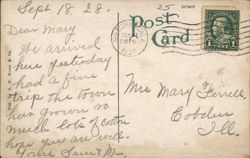 Sept 18 28.
25
Post
Card
1 CENT 1
Dear Mary
We arrived
here yesterday
had a fine
trip the town
has grown so
much lots of cotton
hope you are well.
Mrs Mary Ferrell
Cobden
Ill.